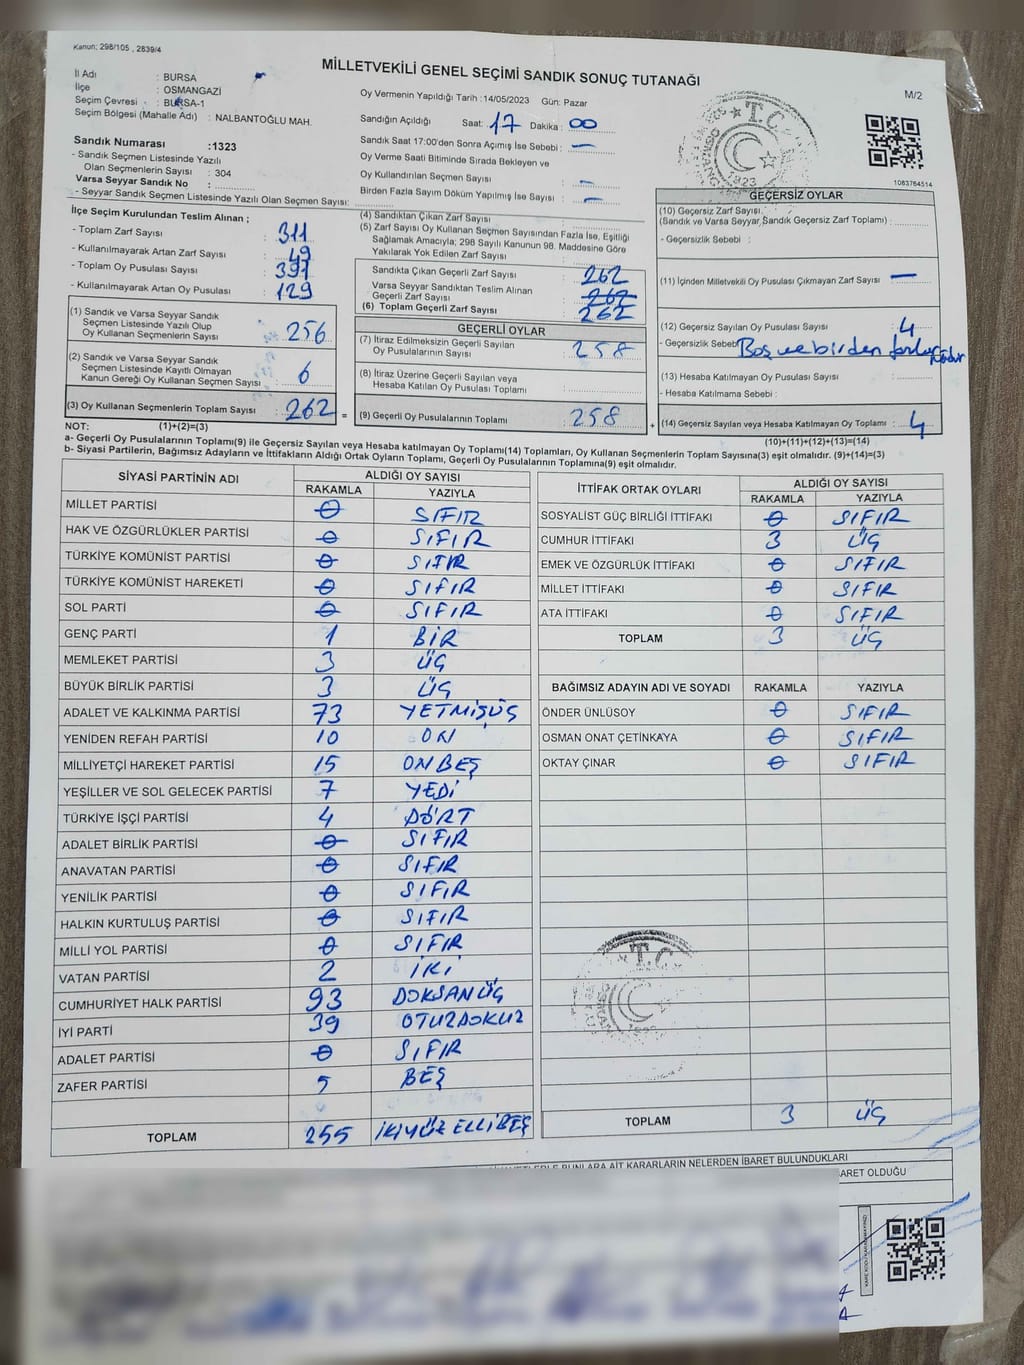 Kanun: 298/105 , 2839/4
MİLLETVEKİLİ GENEL SEÇİMİ SANDIK SONUÇ TUTANAĞI
M/2
İl Adı : BURSA
İlçe : OSMANGAZİ
Seçim Çevresi : BURSA-1
Seçim Bölgesi (Mahalle Adı) : NALBANTOĞLU MAH.
Oy Vermenin Yapıldığı Tarih :14/05/2023 Gün: Pazar
Sandığın Açıldığı Saat: 17 Dakika: 00
Sandık Saat 17:00'den Sonra Açımış İse Sebebi : —
Oy Verme Saati Bitiminde Sırada Bekleyen ve
Oy Kullandırılan Seçmen Sayısı : —
Birden Fazla Sayım Döküm Yapılmış İse Sayısı : —
Sandık Numarası :1323
- Sandık Seçmen Listesinde Yazılı
Olan Seçmenlerin Sayısı : 304
Varsa Seyyar Sandık No :
- Seyyar Sandık Seçmen Listesinde Yazılı Olan Seçmen Sayısı:
1083764514
T.C.
1923
İlçe Seçim Kurulundan Teslim Alınan ;
- Toplam Zarf Sayısı : 311
- Kullanılmayarak Artan Zarf Sayısı : 49
- Toplam Oy Pusulası Sayısı : 391
- Kullanılmayarak Artan Oy Pusulası : 129
(1) Sandık ve Varsa Seyyar Sandık
Seçmen Listesinde Yazılı Olup
Oy Kullanan Seçmenlerin Sayısı : 256
(2) Sandık ve Varsa Seyyar Sandık
Seçmen Listesinde Kayıtlı Olmayan
Kanun Gereği Oy Kullanan Seçmen Sayısı : 6
(3) Oy Kullanan Seçmenlerin Toplam Sayısı : 262 =
(4) Sandıktan Çıkan Zarf Sayısı :
(5) Zarf Sayısı Oy Kullanan Seçmen Sayısından Fazla İse, Eşitliği
Sağlamak Amacıyla; 298 Sayılı Kanunun 98. Maddesine Göre
Yakılarak Yok Edilen Zarf Sayısı :
Sandıkta Çıkan Geçerli Zarf Sayısı : 262
Varsa Seyyar Sandıktan Teslim Alınan
Geçerli Zarf Sayısı : 262
(6) Toplam Geçerli Zarf Sayısı : 262
GEÇERLİ OYLAR
(7) İtiraz Edilmeksizin Geçerli Sayılan
Oy Pusulasının Sayısı : 258
(8) İtiraz Üzerine Geçerli Sayılan veya
Hesaba Katılan Oy Pusulası Toplamı :
(9) Geçerli Oy Pusulalarının Toplamı : 258 +
GEÇERSİZ OYLAR
(10) Geçersiz Zarf Sayısı
(Sandık ve Varsa Seyyar Sandık Geçersiz Zarf Toplamı) :
- Geçersizlik Sebebi :
(11) İçinden Milletvekili Oy Pusulası Çıkmayan Zarf Sayısı : —
(12) Geçersiz Sayılan Oy Pusulası Sayısı : 4
- Geçersizlik Sebebi Boş ve birden fazla
(13) Hesaba Katılmayan Oy Pusulası Sayısı :
- Hesaba Katılmama Sebebi :
(14) Geçersiz Sayılan veya Hesaba Katılmayan Oy Toplamı : 4
NOT: (1)+(2)=(3)
(10)+(11)+(12)+(13)=(14)
a- Geçerli Oy Pusulalarının Toplamı(9) ile Geçersiz Sayılan veya Hesaba katılmayan Oy Toplamı(14) Toplamları, Oy Kullanan Seçmenlerin Toplam Sayısına(3) eşit olmalıdır. (9)+(14)=(3)
b- Siyasi Partilerin, Bağımsız Adayların ve İttifakların Aldığı Ortak Oyların Toplamı, Geçerli Oy Pusulalarının Toplamına(9) eşit olmalıdır.
SİYASİ PARTİNİN ADI ALDIĞI OY SAYISI
RAKAMLA YAZIYLA
MİLLET PARTİSİ 0 SIFIR
HAK VE ÖZGÜRLÜKLER PARTİSİ 0 SIFIR
TÜRKİYE KOMÜNİST PARTİSİ 0 SIFIR
TÜRKİYE KOMÜNİST HAREKETİ 0 SIFIR
SOL PARTİ 0 SIFIR
GENÇ PARTİ 1 BİR
MEMLEKET PARTİSİ 3 ÜÇ
BÜYÜK BİRLİK PARTİSİ 3 ÜÇ
ADALET VE KALKINMA PARTİSİ 73 YETMİŞÜÇ
YENİDEN REFAH PARTİSİ 10 ON
MİLLİYETÇİ HAREKET PARTİSİ 15 ONBEŞ
YEŞİLLER VE SOL GELECEK PARTİSİ 7 YEDİ
TÜRKİYE İŞÇİ PARTİSİ 4 DÖRT
ADALET BİRLİK PARTİSİ 0 SIFIR
ANAVATAN PARTİSİ 0 SIFIR
YENİLİK PARTİSİ 0 SIFIR
HALKIN KURTULUŞ PARTİSİ 0 SIFIR
MİLLİ YOL PARTİSİ 0 SIFIR
VATAN PARTİSİ 2 İKİ
CUMHURİYET HALK PARTİSİ 93 DOKSANÜÇ
İYİ PARTİ 39 OTUZDOKUZ
ADALET PARTİSİ 0 SIFIR
ZAFER PARTİSİ 5 BEŞ
TOPLAM 255 İKİYÜZELLİBEŞ
İTTİFAK ORTAK OYLARI ALDIĞI OY SAYISI
RAKAMLA YAZIYLA
SOSYALİST GÜÇ BİRLİĞİ İTTİFAKI 0 SIFIR
CUMHUR İTTİFAKI 3 ÜÇ
EMEK VE ÖZGÜRLÜK İTTİFAKI 0 SIFIR
MİLLET İTTİFAKI 0 SIFIR
ATA İTTİFAKI 0 SIFIR
TOPLAM 3 ÜÇ
BAĞIMSIZ ADAYIN ADI VE SOYADI RAKAMLA YAZIYLA
ÖNDER ÜNLÜSOY 0 SIFIR
OSMAN ONAT ÇETİNKAYA 0 SIFIR
OKTAY ÇINAR 0 SIFIR
T.C.
TOPLAM 3 ÜÇ
BUNLARA AİT KARARLARIN NELERDEN İBARET BULUNDUKLARI
BARET OLDUĞU